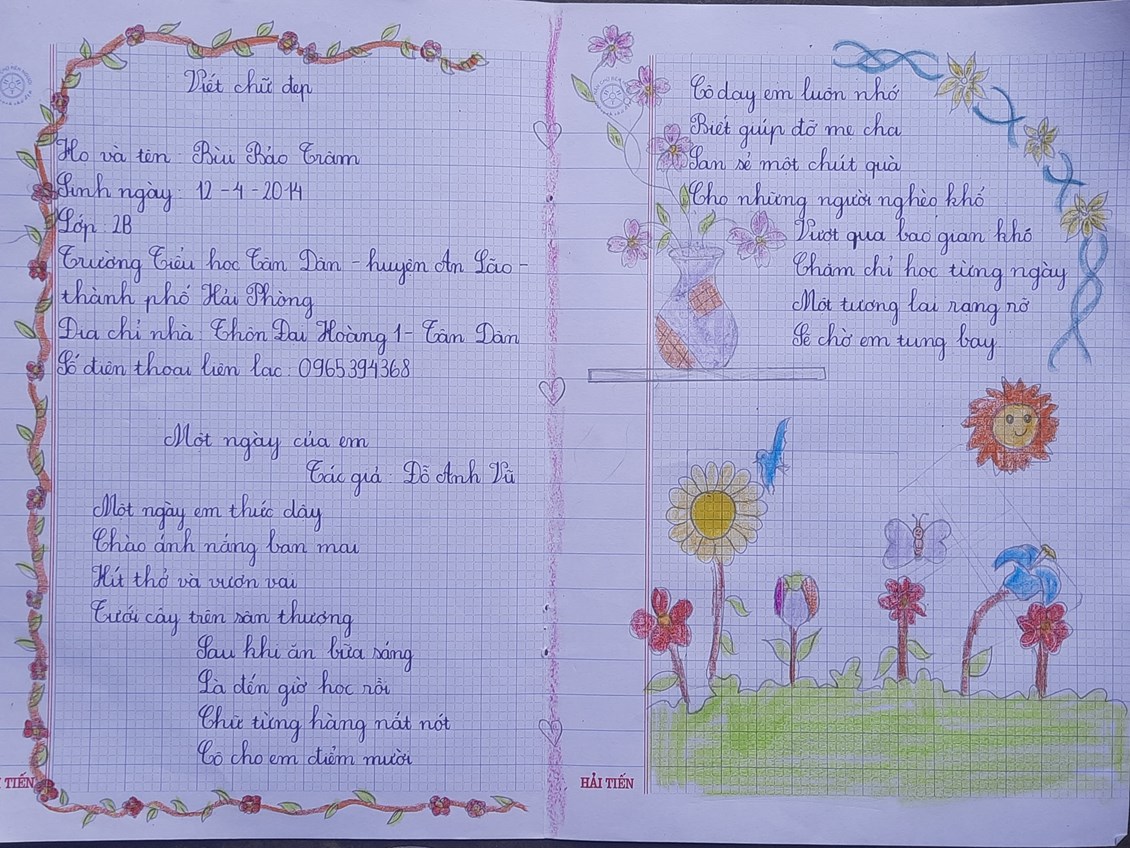 Viết chữ đẹp
Họ và tên: Bùi Bảo Trâm
Sinh ngày: 12-4-2014
Lớp: 2B
Trường Tiểu học Tân Dân - huyện An Lão -
thành phố Hải Phòng
Địa chỉ nhà: Thôn Đại Hoàng 1- Tân Dân
Số điện thoại liên lạc: 0965394368
Một ngày của em
Tác giả: Đỗ Anh Vũ
Một ngày em thức dậy
Chào ánh nắng ban mai
Hít thở và vươn vai
Tưới cây trên sân thượng
Sau khi ăn bữa sáng
Là đến giờ học rồi
Chữ từng hàng nắt nót
Cô cho em điểm mười
HẢI TIẾN
Cô dạy em luôn nhớ
Biết giúp đỡ mẹ cha
San sẻ một chút quà
Cho những người nghèo khổ
Vượt qua bao gian khó
Chăm chỉ học từng ngày
Một tương lai rạng rỡ
Sẽ chờ em tung bay
HẢI TIẾN